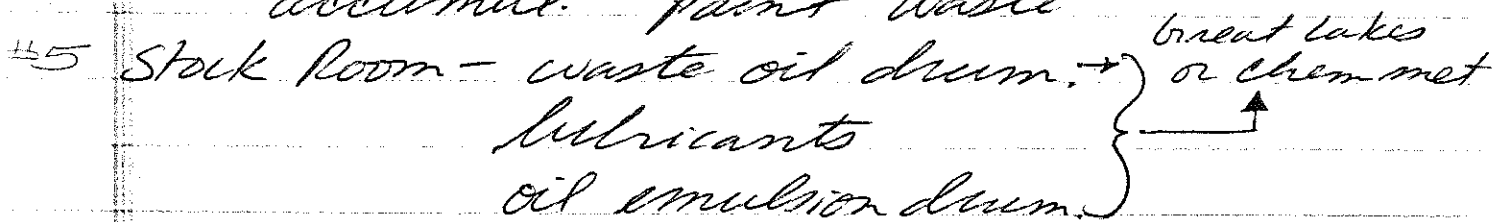 accumul. Paint waste
#5 Stock Room - waste oil drum. → Great Lakes
or chem met
lubricants
oil emulsion drum.